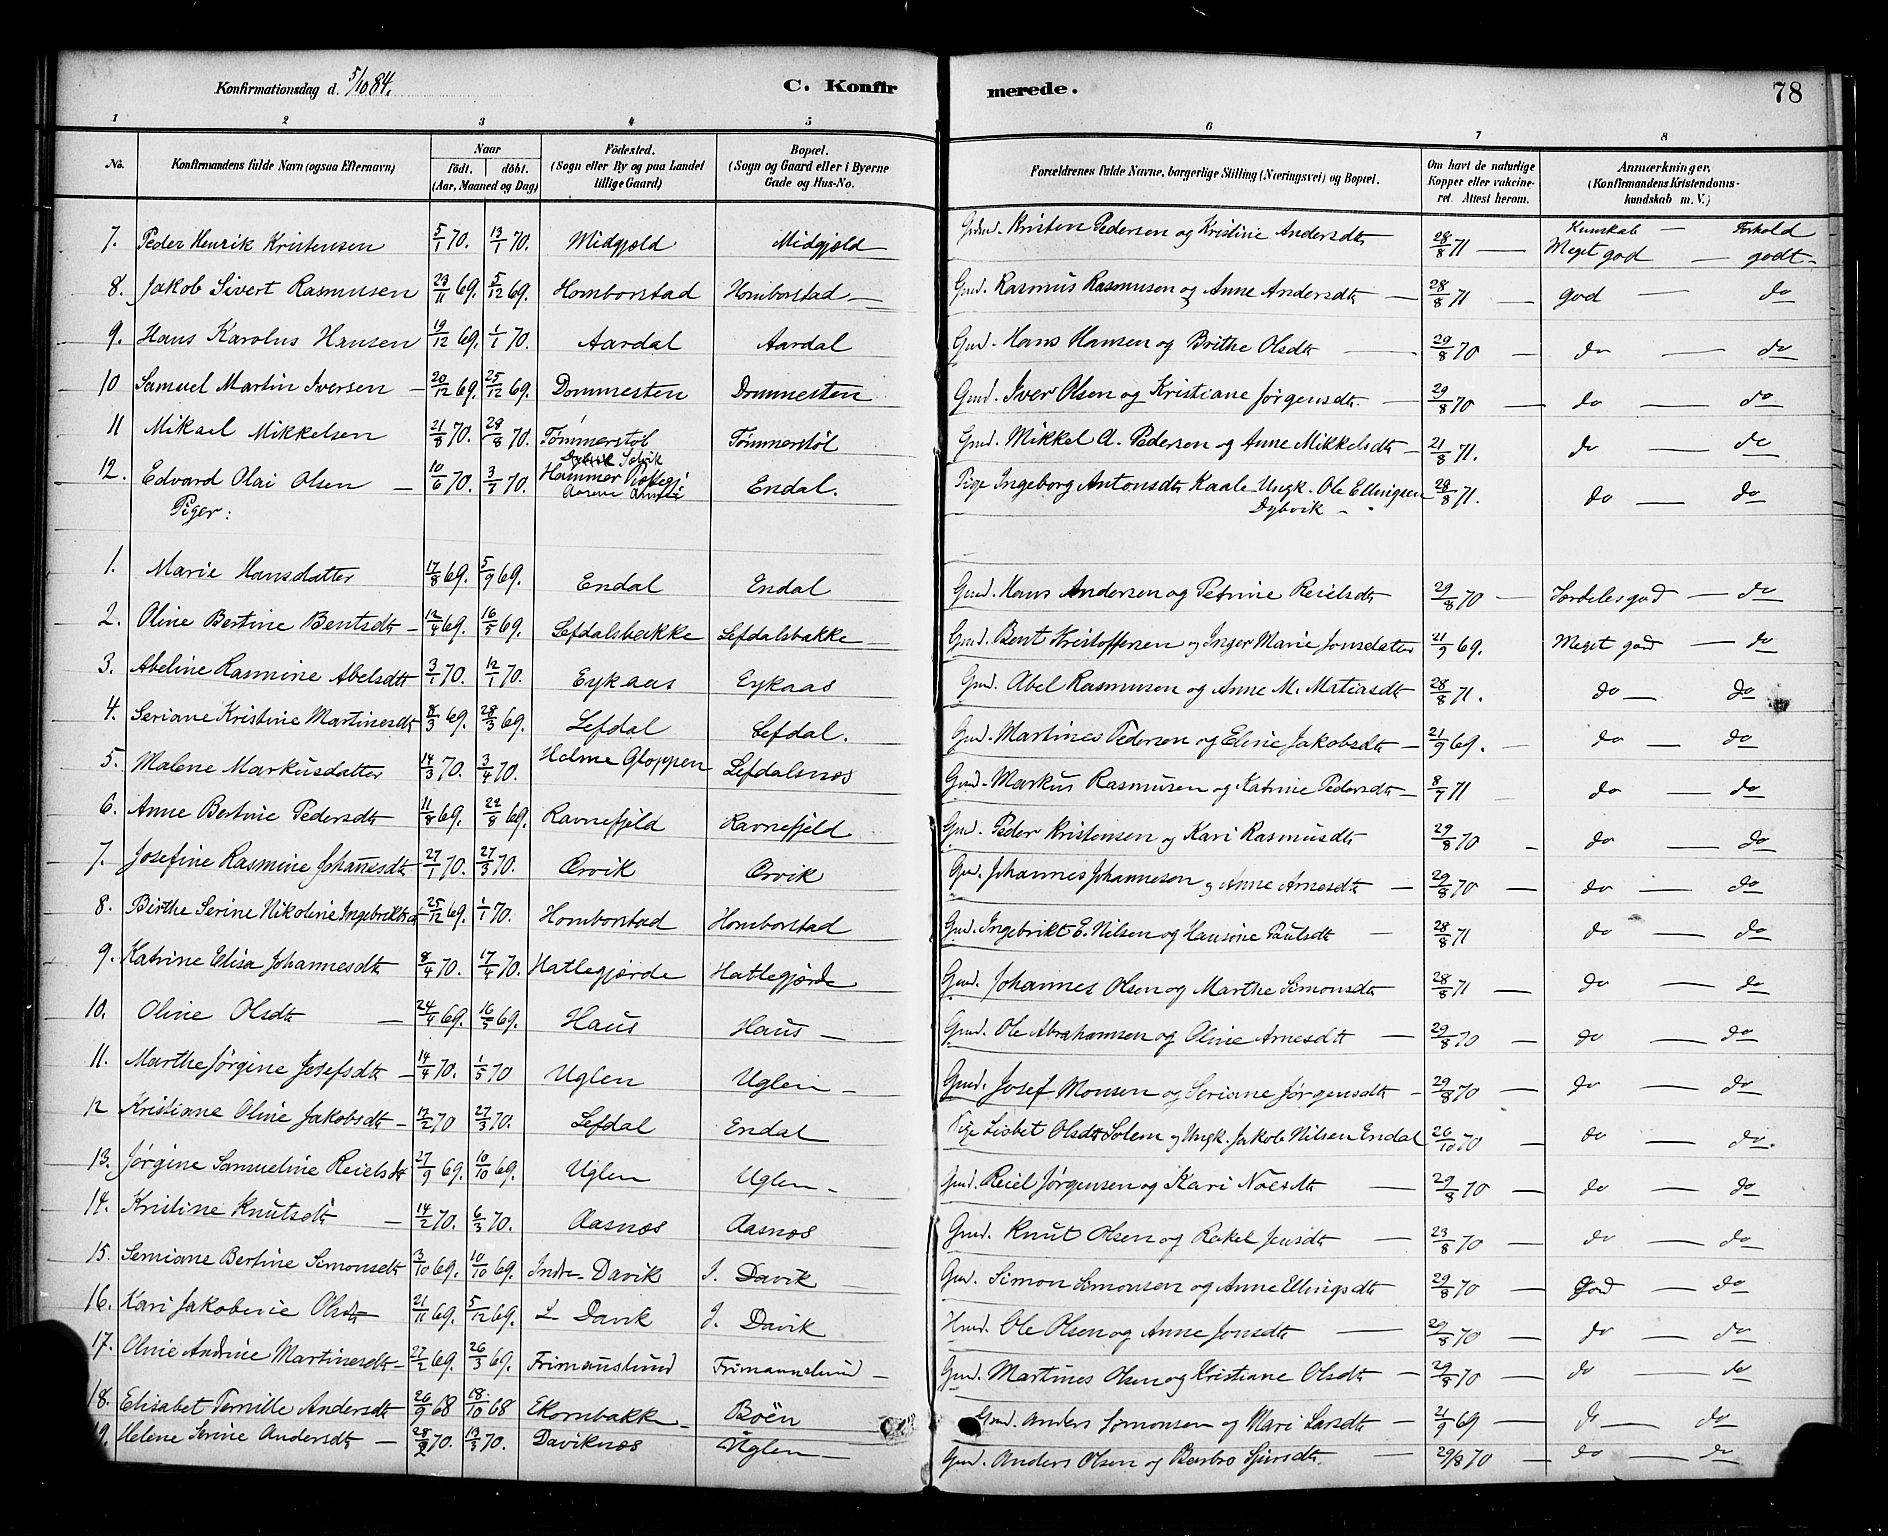 Konfirmationsdag d. 5/10 84.
C. Konfirmerede.
78
1 2 3 4 5 6 7 8
No. Konfirmandens fulde Navn (ogsaa Efternavn) Naar födt. döbt. (Aar, Maaned og Dag) Födested. (Sogn eller By og paa Landet tillige Gaard) Bopæl. (Sogn og Gaard eller i Byerne Gade og Hus-No. Forældrenes fulde Navne, borgerlige Stilling (Næringsvei) og Bopæl. Om havt de naturlige Kopper eller vakcineret. Attest herom. Anmærkninger. (Konfirmandens Kristendomskundskab m. V.)
Kunnskab — Forhold
7. Peder Henrik Kristensen 5/1 70. 13/1 70. Midgjæld Midgjæld Gmd. Kristen Pedersen og Kristine Andersdtr 28/8 71 — Meget god — godt
8. Jakob Sivert Rasmusen 23/11 69. 5/12 69. Homborstad Homborstad — Gmd. Rasmus Rasmusen og Anne Andersdtr — 28/8 71 — god — do
9. Hans Karolus Hansen 19/12 69. 1/1 70. Aardal Aardal Gmd. Hans Hansen og Brithe Olsdtr — 29/8 70 — do — do
10 Samuel Martin Iversen — 20/12 69. 25/12 69. Dommesten Dommesten Gmd. Iver Olsen og Kristiane Jørgensdtr. — 29/8 70 — do — do
11 Mikael Mikkelsen 21/8 70. 28/8 70. Tømmerstøl Tømmerstøl Gmd. Mikkel A. Pedersen og Anne Mikkelsdtr — 21/8 71. do — do
12. Edvard Olai Olsen — 10/6 70. 3/7 70. Hammer Endal. Pige Ingeborg Antonsdtr Kaale Ungk. Ole Ellingsen Dybvik 28/8 71. do — do
Piger:
1. Marie Hansdatter 17/8 69. 5/9 69. Endal Endal Gmd. Hans Andersen og Petrine Reielsdtr 29/8 70 — Særdeles god — do
2. Oline Bertine Bentsdtr — 12/4 69. 16/5 69. Lefdalsbakke Lefdalsbakke — Gmd. Bent Kristoffersen og Inger Marie Jonsdatter 21/9 69. Meget god — do
3. Abeline Rasmine Abelsdtr 3/1 70. 12/1 70. Eykaas Eykaas Gmd. Abel Rasmusen og Anne M. Matiasdtr 28/8 71. do — do
4. Seriane Kristine Martinesdtr 8/3 69. 28/3 69. Lefdal Lefdal. Gmd. Martines Pedersen og Eline Jakobsdtr — 21/9 69. — do — do
5. Malene Markusdatter 14/3 70. 3/4 70. Holme Gloppen Lefdalsnæs Gmd. Markus Rasmusen og Katrine Pedersdtr — 8/7 71 — do — do
6. Anne Bertine Pedersdtr 11/8 69. 22/8 69. Ravnefjeld Ravnefjeld Gmd. Peder Kristensen og Kari Rasmusdtr 29/8 70 — do — do
7. Josefine Rasmine Johanesdtr 27/1 70. 27/3 70. Ørvik Ørvik Gmd. Johannes Johannesen og Anne Arnesdtr — 29/8 70 — do — do
8. Birthe Serine Nikoline Ingebriktsdt 25/12 69. 1/1 70. Homborstad Homborstad Gmd. Ingebrikt E. Nilsen og Hansine Paulsdtr — 28/8 71 do — do
9. Katrine Elisa Johannesdtr 8/4 70. 17/4 70. Hatlegjærde Hatlegjærde Gmd. Johannes Olsen og Marthe Simonsdtr 28/8 71 — do — do
10. Oline Olsdtr — 24/4 69. 16/5 69. Haus Haus — Gmd. Ole Abrahamsen og Oline Arnesdtr — 29/8 70 — do — do
11. Marthe Jørgine Josefsdtr — 14/4 70. 1/5 70 Uglen Uglen — Gmd. Josef Monsen og Seriane Jørgensdtr — 29/8 70 — do — do
12 Kristiane Oline Jakobsdtr — 12/2 70 27/3 70. Lefdal Endal Pige Lisbet Olsdtr Solem og Ungk. Jakob Nilsen Endal 26/10 70 do — do.
13. Jørgine Samueline Reielsdtr 27/9 69. 10/10 69. Uglen Uglen — Gmd. Reiel Jørgensen og Kari Noesdtr — 29/8 70 — do — do
14. Kristine Knutsdtr — 14/2 70. 6/3 70. Aasnæs Aasnæs Gmd. Knut Olsen og Rakel Jensdtr — 23/8 70 — do — do
15. Semiane Bertine Simonsdtr 3/10 69. 10/10 69. Indre Davik I. Davik — Gmd. Simon Simonsen og Anne Ellingsdtr 29/8 70 — God — do
16. Kari Jakobine Olsdtr 21/11 69. 5/12 69. I. Davik I. Davik Hmd. Ole Olsen og Anne Jonsdtr — 29/8 70 — do — do
17. Oline Andrine Martinesdtr — 27/2 69. 26/3 69. Frimanslund Frimannslund — Gmd. Martines Olsen og Kristiane Olsdtr — 29/8 70 — do — do
18. Elisabet Pernille Andersdtr 26/9 68 18/10 68 Ekornbakke Boën Gmd. Anders Simonsen og Mari Larsdtr — 21/9 69 — do — do
19. Helene Serine Andersdtr — 28/2 70. 13/3 70. Daviknæs Uglen — Gmd. Anders Olsen og Barbro Sjursdtr. — 29/8 70 — do — do